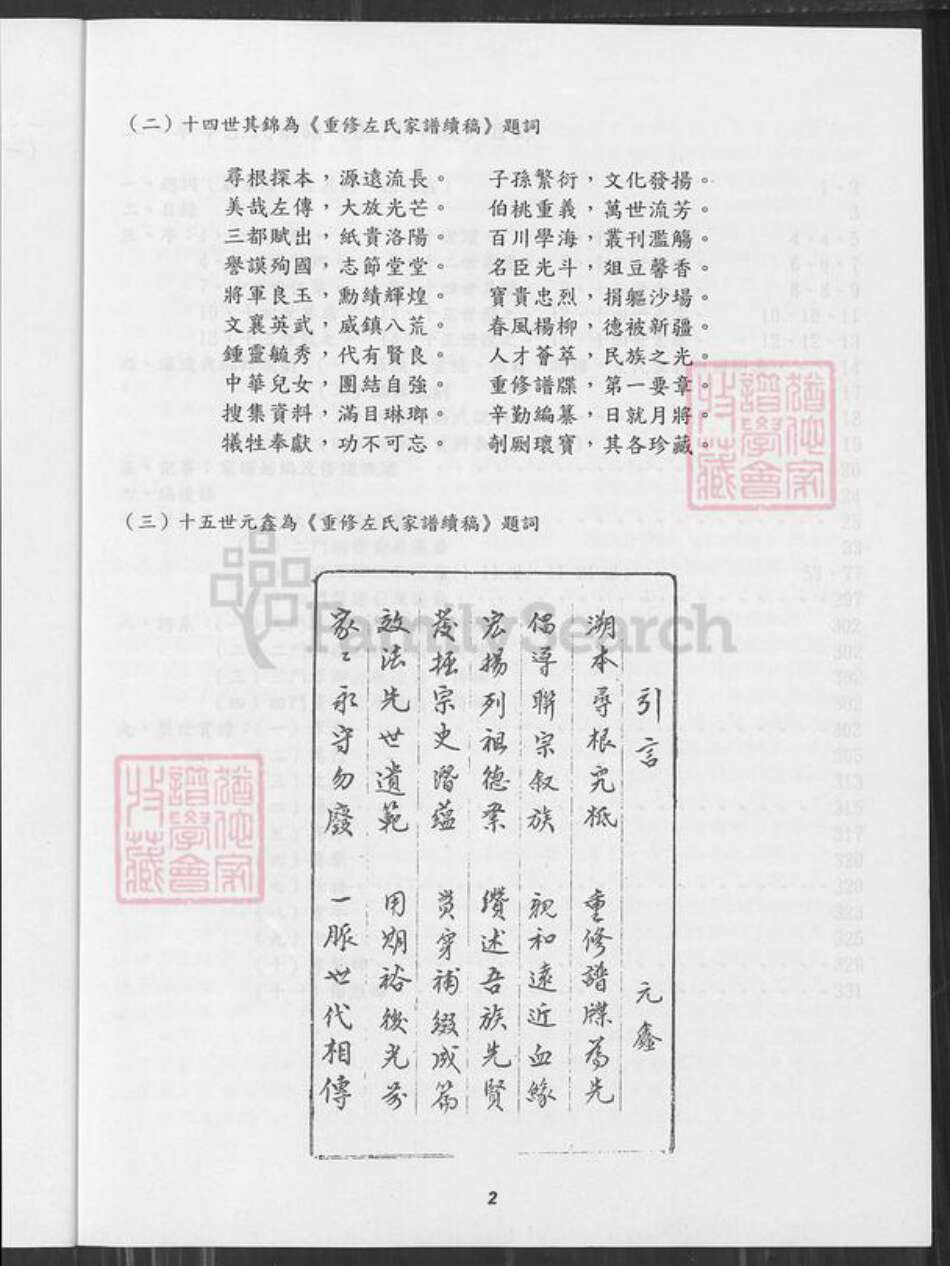 (二)十四世其錦為《重修左氏家譜續稿》題詞
尋根探本，源遠流長。 子孫繁衍，文化發揚。
美哉左傳，大放光芒。 伯桃重義，萬世流芳。
三都賦出，紙貴洛陽。 百川學海，叢刊濫觴。
譽謨殉國，志節堂堂。 名臣光斗，俎豆馨香。
將軍良玉，勳績輝煌。 寶貴忠烈，捐軀沙場。
文襄英武，威鎮八荒。 春風楊柳，德被新疆。
鍾靈毓秀，代有賢良。 人才薈萃，民族之光。
中華兒女，團結自強。 重修譜牒，第一要章。
搜集資料，滿目琳瑯。 辛勤編纂，日就月將。
犧牲奉獻，功不可忘。 剞劂瓌寶，其各珍藏。
(三)十五世元鑫為《重修左氏家譜續稿》題詞
引言 元鑫
溯本尋根究柢 重修譜牒為先
倡導聯宗叙族 親和遠近血緣
宏揚列祖德業 纘述吾族先賢
發掘宗史潛蘊 貫穿補綴成篇
效法先世遺範 用期裕後光前
家々永守勿廢 一脈世代相傳
2
FamilySearch